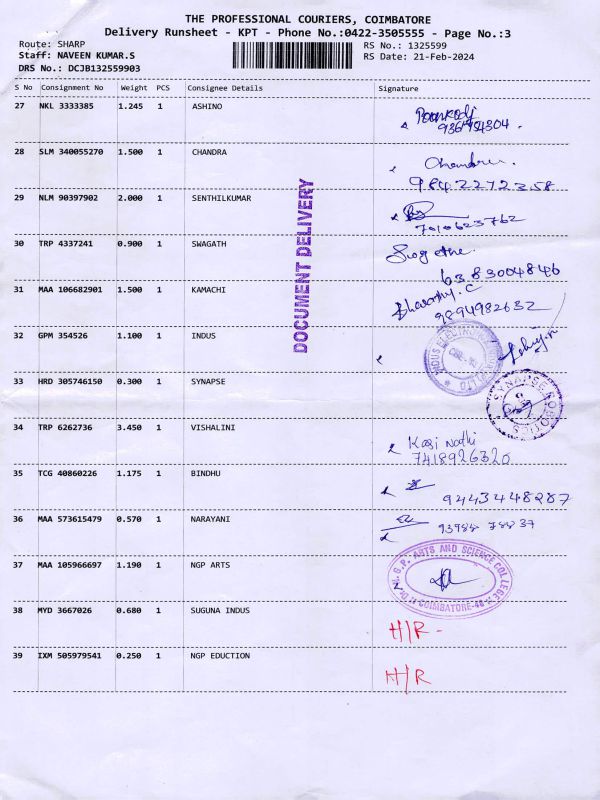 THE PROFESSIONAL COURIERS, COIMBATORE
Delivery Runsheet - KPT - Phone No.:0422-3505555 - Page No.:3
Route: SHARP
Staff: NAVEEN KUMAR.S
DRS No.: DCJB132559903
RS No.: 1325599
RS Date: 21-Feb-2024
S No Consignment No Weight PCS Consignee Details Signature
27 NKL 3333385 1.245 1 ASHINO
28 SLM 340055270 1.500 1 CHANDRA
9842272358
29 NLM 90397902 2.000 1 SENTHILKUMAR
7010623762
30 TRP 4337241 0.900 1 SWAGATH
6383004846
31 MAA 106682901 1.500 1 KAMACHI
9894982632
32 GPM 354526 1.100 1 INDUS
33 HRD 305746150 0.300 1 SYNAPSE
SYNAPSE ROBOTICS
34 TRP 6262736 3.450 1 VISHALINI
7418926320
35 TCG 40860226 1.175 1 BINDHU
9443448287
36 MAA 573615479 0.570 1 NARAYANI
93988 78837
37 MAA 105966697 1.190 1 NGP ARTS
N.G.P. ARTS AND SCIENCE COLLEGE
COIMBATORE-48
38 MYD 3667026 0.680 1 SUGUNA INDUS
H/R -
39 IXM 505979541 0.250 1 NGP EDUCTION
H/R
DOCUMENT DELIVERY